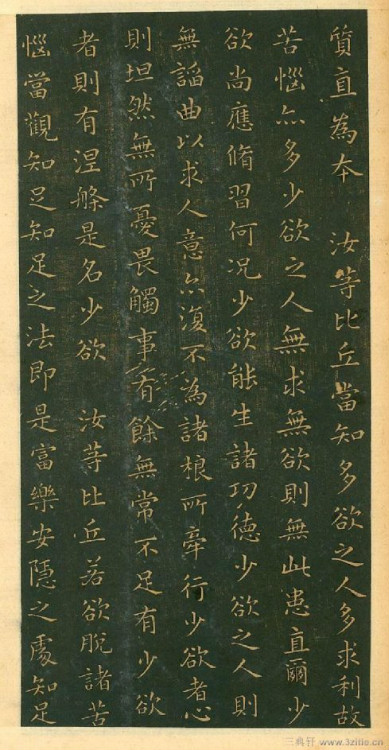 質直為本　汝等比丘當知多欲之人多求利故
苦惱亦多少欲之人無求無欲則無此患直爾少
欲尚應脩習何況少欲能生諸功德少欲之人則
無諂曲以求人意亦復不為諸根所牽行少欲者心
則坦然無所憂畏觸事有餘無常不足有少欲
者則有涅槃是名少欲　汝等比丘若欲脫諸苦
惱當觀知足知足之法即是富樂安隱之處知足
三希轩 www.3zitie.cn